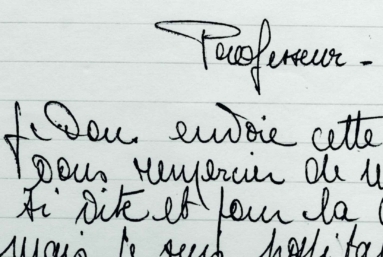 Professeur -
je vous envoie cette
vous remercier de
si vite et pour la
mais je suis